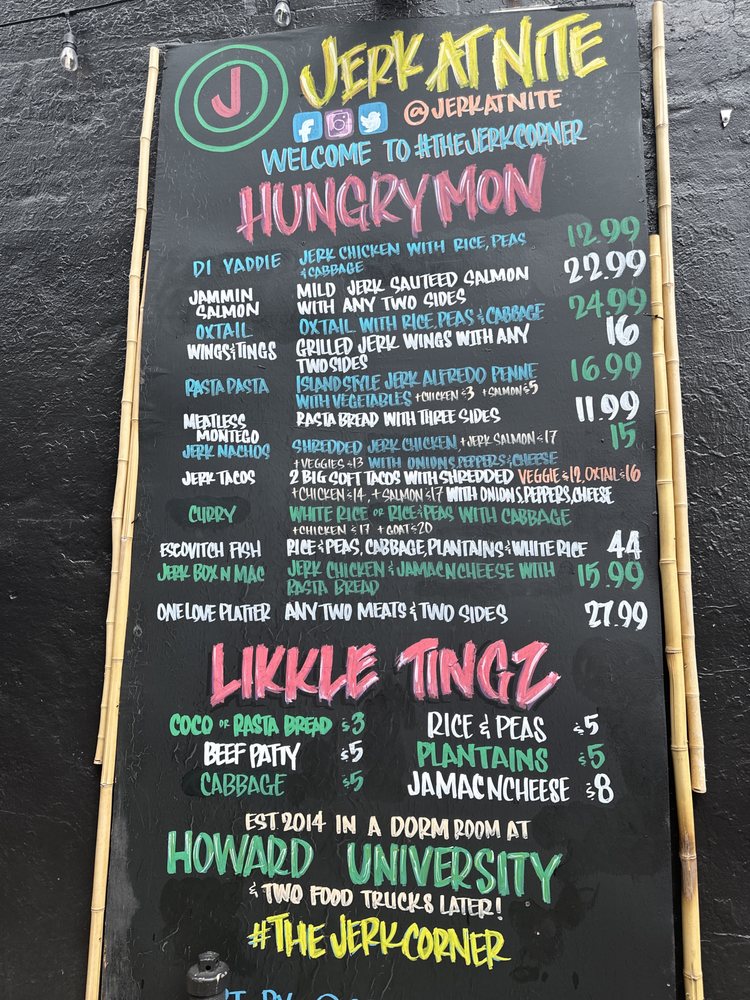 J
JERK AT NITE
@JERKATNITE
WELCOME TO #THEJERKCORNER
HUNGRY MON
DI YADDIE JERK CHICKEN WITH RICE, PEAS & CABBAGE 12.99
JAMMIN SALMON MILD JERK SAUTEED SALMON WITH ANY TWO SIDES 22.99
OXTAIL OXTAIL WITH RICE, PEAS & CABBAGE 24.99
WINGS & TINGS GRILLED JERK WINGS WITH ANY TWO SIDES 16
RASTA PASTA ISLAND STYLE JERK ALFREDO PENNE WITH VEGETABLES +CHICKEN $3 +SALMON $5 16.99
MEATLESS MONTEGO RASTA BREAD WITH THREE SIDES 11.99
JERK NACHOS SHREDDED JERK CHICKEN, +JERK SALMON $17 +VEGGIES $13 WITH ONIONS, PEPPERS, & CHEESE 15
JERK TACOS 2 BIG SOFT TACOS WITH SHREDDED VEGGIE $12, OXTAIL $16 +CHICKEN $14, +SALMON $17 WITH ONIONS, PEPPERS, CHEESE
CURRY WHITE RICE OR RICE & PEAS WITH CABBAGE +CHICKEN $17 +GOAT $20
ESCOVITCH FISH RICE & PEAS, CABBAGE, PLANTAINS & WHITE RICE 44
JERK BOX N MAC JERK CHICKEN & JAMACNCHEESE WITH RASTA BREAD 15.99
ONE LOVE PLATTER ANY TWO MEATS & TWO SIDES 27.99
LIKKLE TINGZ
COCO OR RASTA BREAD $3 RICE & PEAS $5
BEEF PATTY $5 PLANTAINS $5
CABBAGE $5 JAMACNCHEESE $8
EST. 2014 IN A DORM ROOM AT
HOWARD UNIVERSITY
& TWO FOOD TRUCKS LATER!
#THEJERKCORNER